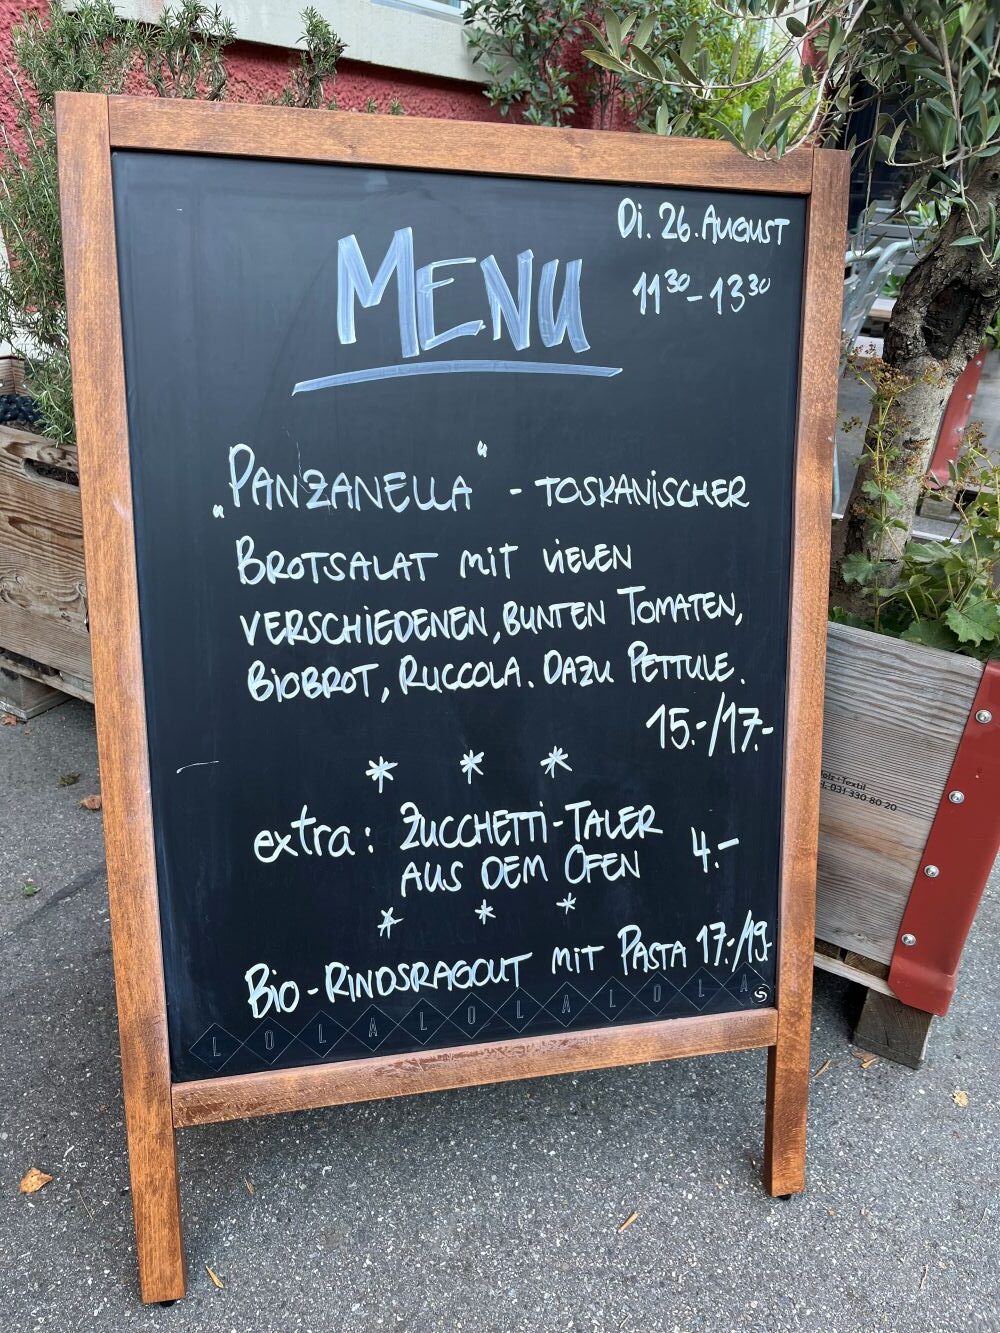 MENU
Di. 26. AUGUST
11³⁰ - 13³⁰
„PANZANELLA“ - TOSKANISCHER
BROTSALAT MIT VIELEN
VERSCHIEDENEN, BUNTEN TOMATEN,
BIOBROT, RUCCOLA. DAZU PETTULE.
15.-/17.-
* * *
extra: ZUCCHETTI-TALER
AUS DEM OFEN 4.-
* * *
BIO-RINDSRAGOUT MIT PASTA 17.-/19.-
LOLALOLALOLA
olz + Textil
l. 031 330 80 20